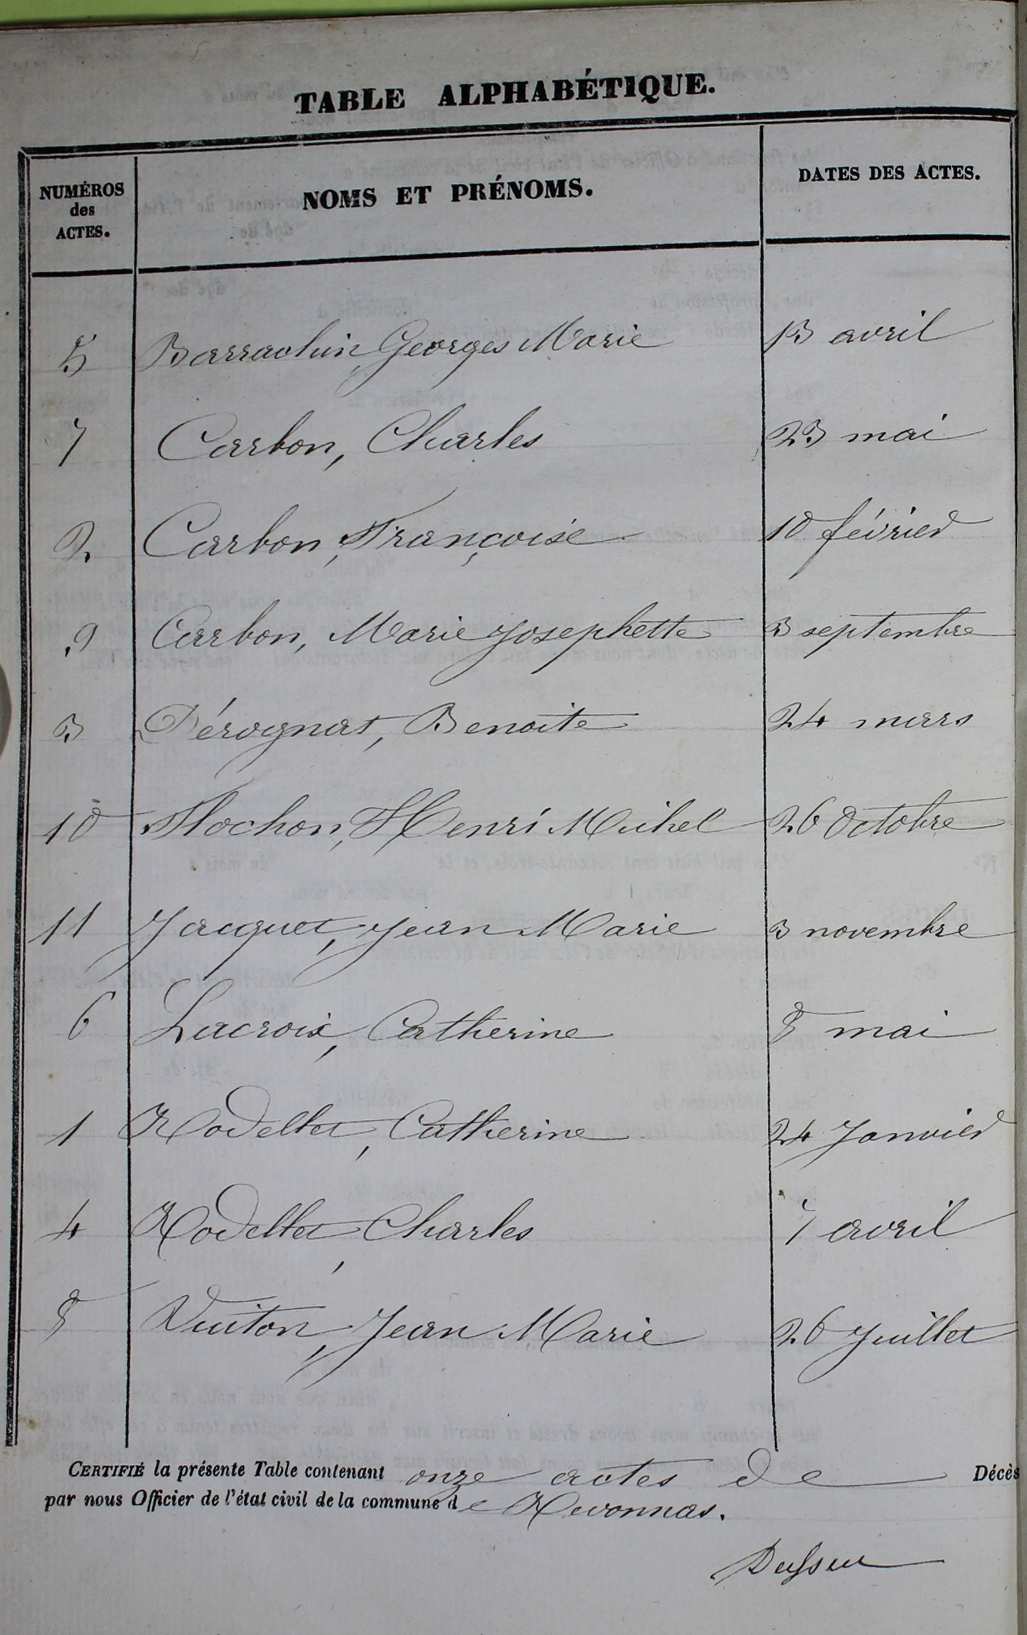 TABLE ALPHABÉTIQUE.
NUMÉROS des ACTES. NOMS ET PRÉNOMS. DATES DES ACTES.
5 Barrachin, Georges Marie 13 avril
7 Carbon, Charles 23 mai
2 Carbon, Françoise 10 février
9 Carbon, Marie Josephette 3 septembre
3 Dérognat, Benoite 24 mars
10 Flochon, Henri Michel 26 Octobre
11 Jacquet, Jean Marie 3 novembre
6 Lacroix, Catherine 8 mai
1 Rodellet, Catherine 24 Janvier
4 Rodellet, Charles 7 avril
8 Vuiton, Jean Marie 26 Juillet
CERTIFIÉ la présente Table contenant onze actes de Décès
par nous Officier de l'état civil de la commune de Revonnas.